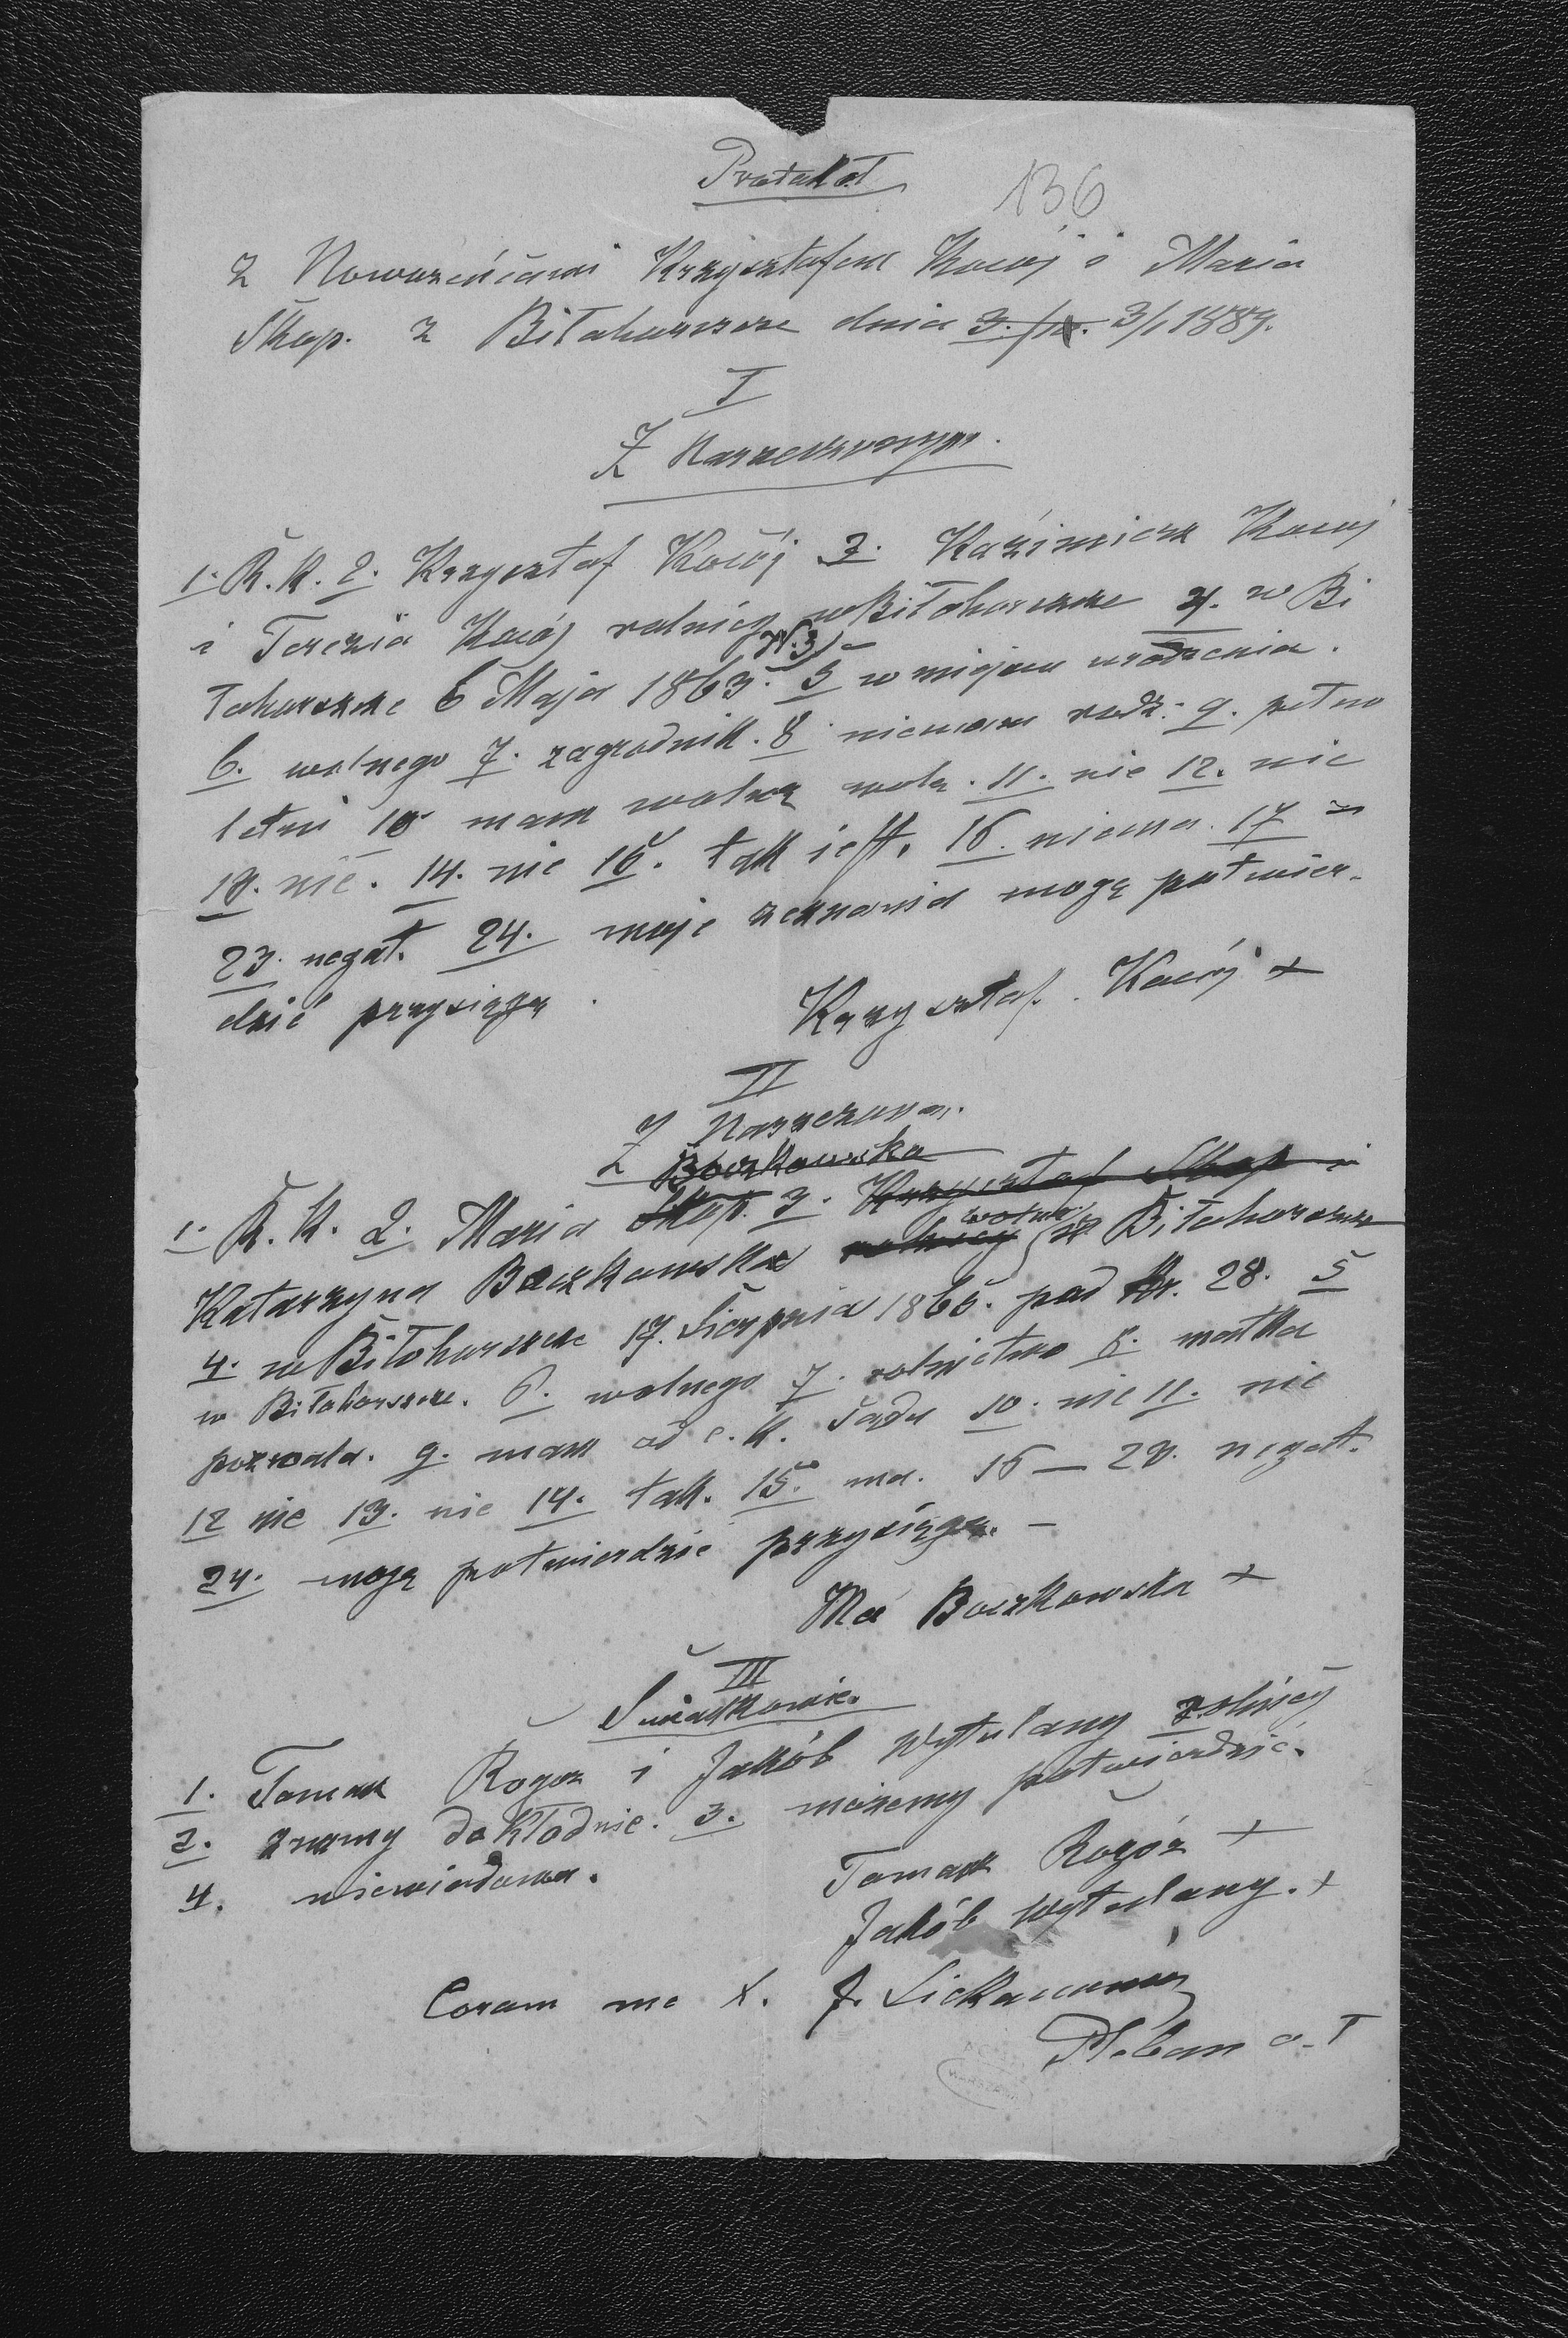 Protokoł
136
z Nowożeńcami Krzysztofem Kocój i Maria
Skop. z Biłohorszcze dnia 3. 3/1 1889.
I
Z Narzeczonym.
1. R. K. 2. Krzysztof Kocój 3. Kazimierz Kocój
i Terezia Kocój rolnicy w Biłohorszcze 4. w Bi
N. 31
łohorszcze 6 Maja 1863. 5 w miejscu urodzenia.
6. wolnego 7. zagrodnik. 8 niemam rodz. 9. pełno
letni 10 mam wolną wolę. 11. nie 12. nie
13. nie. 14. nie 15. tak jest. 16. niema. 17 –
23. negat. 24. moje zeznania mogę potwier-
dzić przysięgą.
Krzysztof. Kocój +
II
Z Narzeczoną.
Boczkowska
1. R. K. 2. Maria Skop. 3. Krzysztof Skop i
Katarzyna Boczkowska z Biłohorszcze
4. w Biłohorszcze 17. Sierpnia 1865. pod Nr. 28. 5
w Biłohorszcze. 6. wolnego 7. rolnictwo 8. matka
pozwala. 9. mam od c. k. Sądu 10. nie 11. nie
12 nie 13. nie 14. tak. 15. ma. 16 — 23. negat.
24. mogę potwierdzić przysięgą. –
Ma Boczkowska +
III
Świadkowie.
1. Tomasz Rogoz i Jakób Wytulany rolnicy
2. znamy dokłodnie. 3. możemy potwierdzić.
4. niewiadoma.
Tomasz Rogóz +
Jakób Wytulany. +
Coram me X. J.
Pleban o. ł